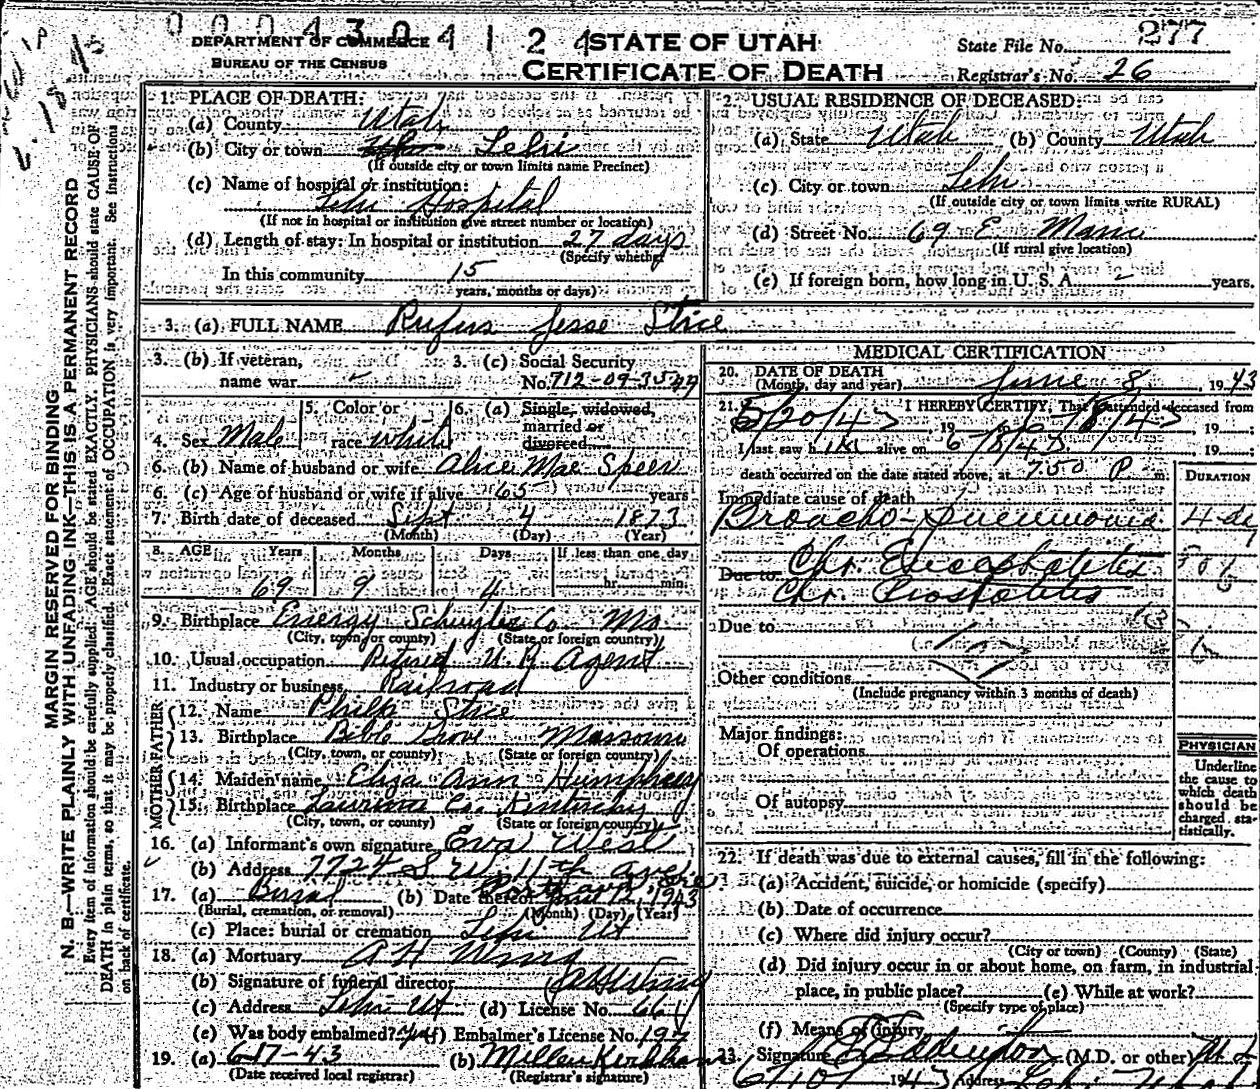 0 0 0 4 3 0 4 1 2 4
DEPARTMENT OF COMMERCE
BUREAU OF THE CENSUS
STATE OF UTAH
CERTIFICATE OF DEATH
State File No. 277
Registrar's No. 26
MARGIN RESERVED FOR BINDING
N. B.—WRITE PLAINLY WITH UNFADING INK—THIS IS A PERMANENT RECORD
Every item of information should be carefully supplied. AGE should be stated EXACTLY. PHYSICIANS should state CAUSE OF
DEATH in plain terms, so that it may be properly classified. Exact statement of OCCUPATION is very important. See instructions
on back of certificate.
1. PLACE OF DEATH:
(a) County Utah
(b) City or town Lehi
(If outside city or town limits name Precinct)
(c) Name of hospital or institution:
Lehi Hospital
(If not in hospital or institution give street number or location)
(d) Length of stay: In hospital or institution 27 days
(Specify whether
In this community 15
years, months or days)
2. USUAL RESIDENCE OF DECEASED:
(a) State Utah (b) County Utah
(c) City or town Lehi
(If outside city or town limits write RURAL)
(d) Street No. 69 E Main
(If rural give location)
(e) If foreign born, how long in U. S. A. - years.
3. (a) FULL NAME Rufus Jesse Stice
3. (b) If veteran,
name war
3. (c) Social Security
No. 712-09-3544
4. Sex Male
5. Color or
race white
6. (a) Single, widowed,
married or
divorced
6. (b) Name of husband or wife Alice Mae Speer
6. (c) Age of husband or wife if alive 65 years
7. Birth date of deceased Sept 4 1873
(Month) (Day) (Year)
8. AGE Years Months Days If less than one day
69 9 4 hr. min.
9. Birthplace Energy Schuyler Co Mo
(City, town, or county) (State or foreign country)
10. Usual occupation Retired U. P. Agent
11. Industry or business Railroad
FATHER
12. Name Stice
13. Birthplace Bible Grove Missouri
(City, town, or county) (State or foreign country)
MOTHER
14. Maiden name Eliza Ann Humphrey
15. Birthplace Lawrence Co. Kentucky
(City, town, or county) (State or foreign country)
16. (a) Informant's own signature Eva West
(b) Address 7724 S W 11th Ave
Portland, Ore
17. (a) Burial (b) Date thereof June 12, 1943
(Burial, cremation, or removal) (Month) (Day) (Year)
(c) Place: burial or cremation Lehi Ut
18. (a) Mortuary A H Wing
(b) Signature of funeral director
(c) Address Lehi Ut (d) License No. 664
(e) Was body embalmed? yes (f) Embalmer's License No. 197
19. (a) 6-17-43 (b) Kirkham
(Date received local registrar) (Registrar's signature)
MEDICAL CERTIFICATION
20. DATE OF DEATH
(Month, day and year) June 8, 1943
21. I HEREBY CERTIFY, That I attended deceased from
5/20/43 19 to 6/8/43, 19
I last saw him alive on 6/8/43, 19
death occurred on the date stated above, at 7:50 P. m.
DURATION
Immediate cause of death
Broncho-Pneumonia 4 day
Due to Chr. Encephalitis
Chr. Prostatitis
Due to
Other conditions
(Include pregnancy within 3 months of death)
Major findings:
Of operations
Of autopsy
PHYSICIAN
Underline
the cause to
which death
should be
charged sta-
tistically.
22. If death was due to external causes, fill in the following:
(a) Accident, suicide, or homicide (specify)
(b) Date of occurrence
(c) Where did injury occur?
(City or town) (County) (State)
(d) Did injury occur in or about home, on farm, in industrial
place, in public place? (e) While at work?
(Specify type of place)
(f) Means of injury
23. Signature Eddington (M.D. or other) M.D.
6/10/ 1943 Address Lehi Utah